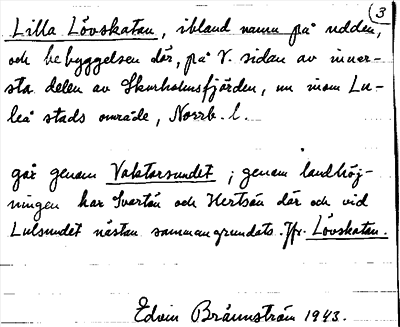 3
Lilla Lövskatan, ibland namn på udden,
och bebyggelsen där, på V. sidan av inner-
sta delen av Skurholmsfjärden, nu inom Lu-
leå stads område, Norrb. l.
går genom Vaktarsundet; genom landhöj-
ningen har Svartön och Hertsön där och vid
Lulsundet nästan sammangrundats. Jfr. Lövskatan.
Edvin Brännström 1943.